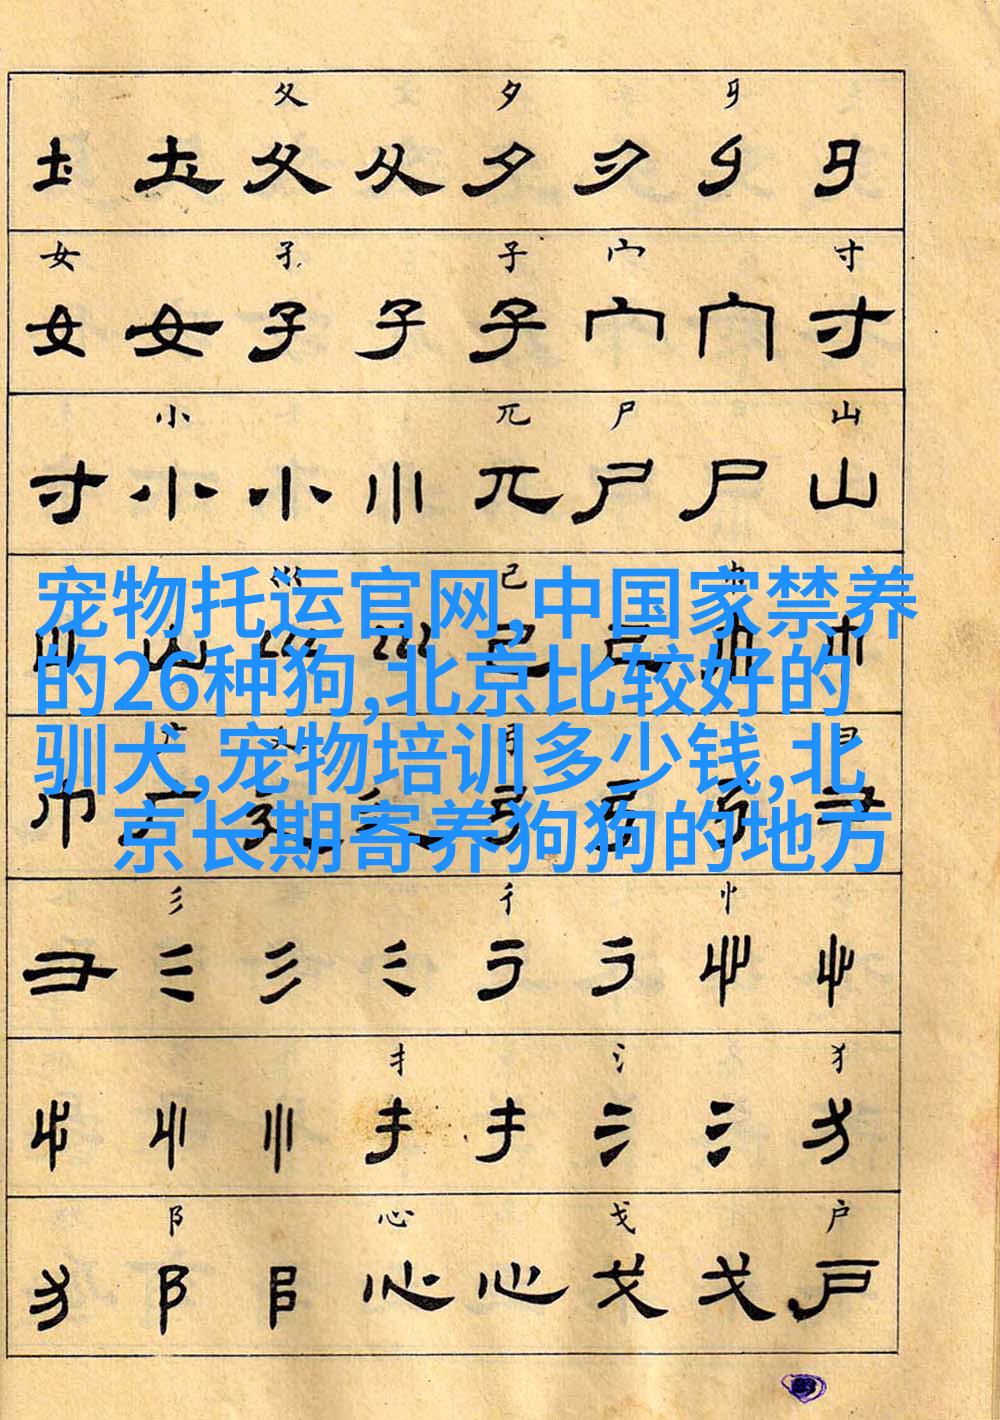 夂 夕 彑
土 土 夂 夂 夕 夕
女 孑 子 宀 寸
女 女 子 子 子 宀 宀 寸
小 兀 尸 山
寸 小 小 小 兀 尸 尸 山
巛 己 巾
宠物托运官网,中国家禁养
的26种狗,北京比较好的
驯犬,宠物培训多少钱,北
京长期寄养狗狗的地方
彡 彳 忄
彡 彡 彡 彳 彳 忄 忄
扌 氵 犭
忄 忄 忄 扌 扌 氵 氵 犭
阝 心 戈 户
犭 阝 阝 心 心 戈 戈 户